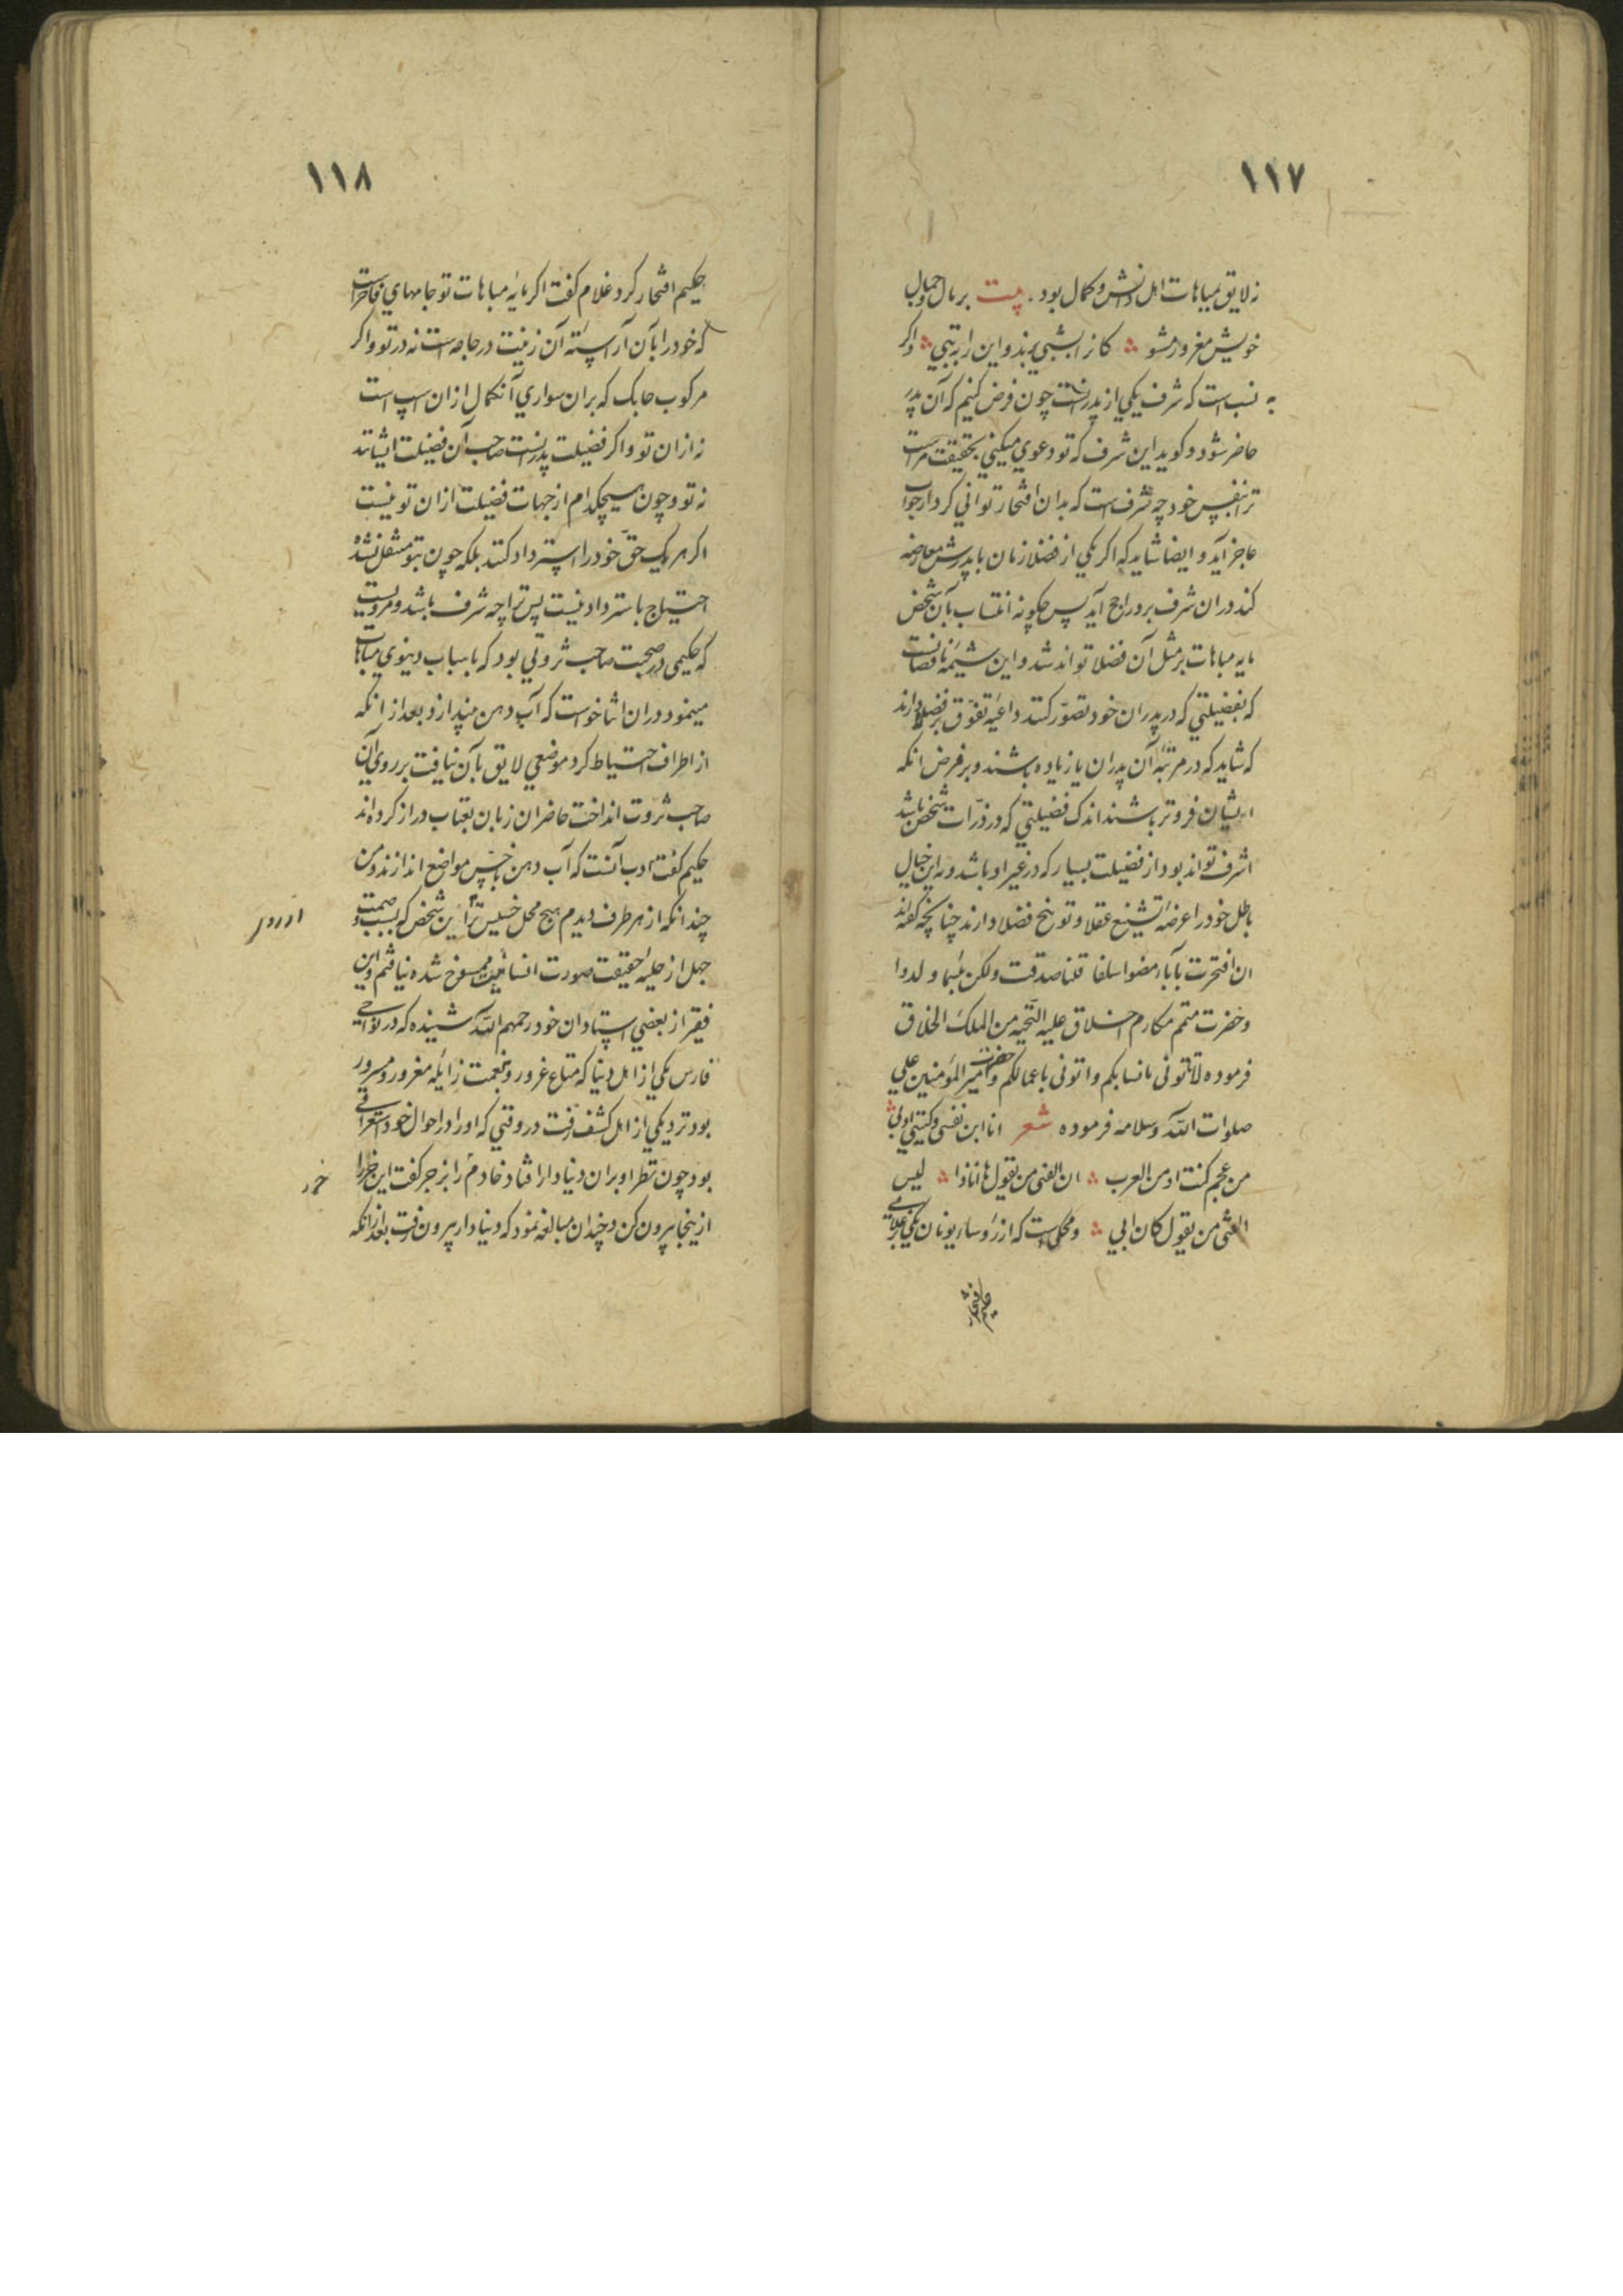 ١١٧
نه لایق مباهات اهل دانش و کمال بود . بیت بر مال و جمال
خویش مغرور مشو کانرا بشبی برند و این را به تبی و اگر
به نسب است که شرف یکی از پدرانست چون فرض کنیم که آن پدر
حاضر شود و کوید این شرف که تو دعوی میکنی بحقیقت مراست
ترا بنفس خود چه شرف است که بدان افتخار توانی کرد از جواب
عاجز آید و ایضا شاید که اکر یکی از فضلا زمان با پدرش معارضه
کند در ان شرف برو راجح آید پس چکونه انتساب بآن شخص
مایه مباهات بر مثل آن فضلا تواند شد و این شیمه ناقصانست
که بفضیلتی که در پدران خود تصوّر کنند داعیه تفوّق بر فضلا دارند
که شاید که در مرتبه آن پدران یا زیاده باشند و بر فرض انکه
از یشان فروتر باشند اندک فضیلتی که در ذرات شخص باشد
اشرف تواند بود از فضیلت بسیار که در غیر او باشد و به این خیال
باطل خود را عرضه تشنیع عقلا و توبیخ فضلا دارند چنانچه کفته اند
ان افتخرت بآباء مضوا سلفا قلنا صدقت ولکن بئسما ولدوا
و حضرت متمم مکارم اخلاق علیه التحیه من الملک الخلاق
فرموده لا تاتونی بانسابکم و اتونی باعمالکم و حضرت امیر المؤمنین علی
صلوات الله و سلامه فرموده شعر انا ابن نفسی و کنیتی ادبی
من عجم کنت او من العرب ان الفتی من یقول ها اناذا لیس
الفتی من یقول کان ابی و محکی است که از رؤساء یونان یکی بر غلامی
حکیم افتخار
١١٨
حکیم افتخار کرد غلام کفت اکر مایه مباهات تو جامهای فاخرست
که خود را بآن آراسته آن زینت در جامه است نه در تو و اکر
مرکوب چابک که بران سواری آنکمال از ان اسپ است
نه از ان تو و اکر فضیلت پدرانست صاحب آن فضیلت ایشانند
نه تو و چون هیچکدام از جهات فضیلت از ان تو نیست
اکر هر یک حقّ خود را استرداد کنند بلکه چون بتو منتقل نشده
احتیاج باسترداد نیست پس ترا چه شرف باشد و مرویست
که حکیمی در صحبت صاحب ثروتی بود که باسباب دنیوی مباهات
مینمود در ان اثنا خواست که آب دهن بیندازد و بعد از انکه
از اطراف احتیاط کرد موضعی لایق بآن نیافت بر روی آن
صاحب ثروت انداخت حاضران زبان بعتاب دراز کرده اند
حکیم کفت ادب آنست که آب دهن باخسّ مواضع اندازند و من
چندانکه از هر طرف دیدم هیچ محل خسیس تر از این شخص که بسبب وصمت
جهل از حلیه حقیقت صورت انسانیت ممسوخ شده نیافتم و این
فقیر از بعضی استادان خود رحمهم الله شنیده که در نواحی
فارس یکی از اهل دنیا که متاع غرور و نعمت زایله مغرور و مسرور
بود نزدیکی از اهل کشف رفت در وقتی که او را در احوال خود استغراقی
بود چون نظر او بران دنیا دار افتاد خادم را بزجر کفت این خر را
خر
از ینجا بیرون کن و چندان مبالغه نمود که دنیا دار بیرون رفت بعد از انکه